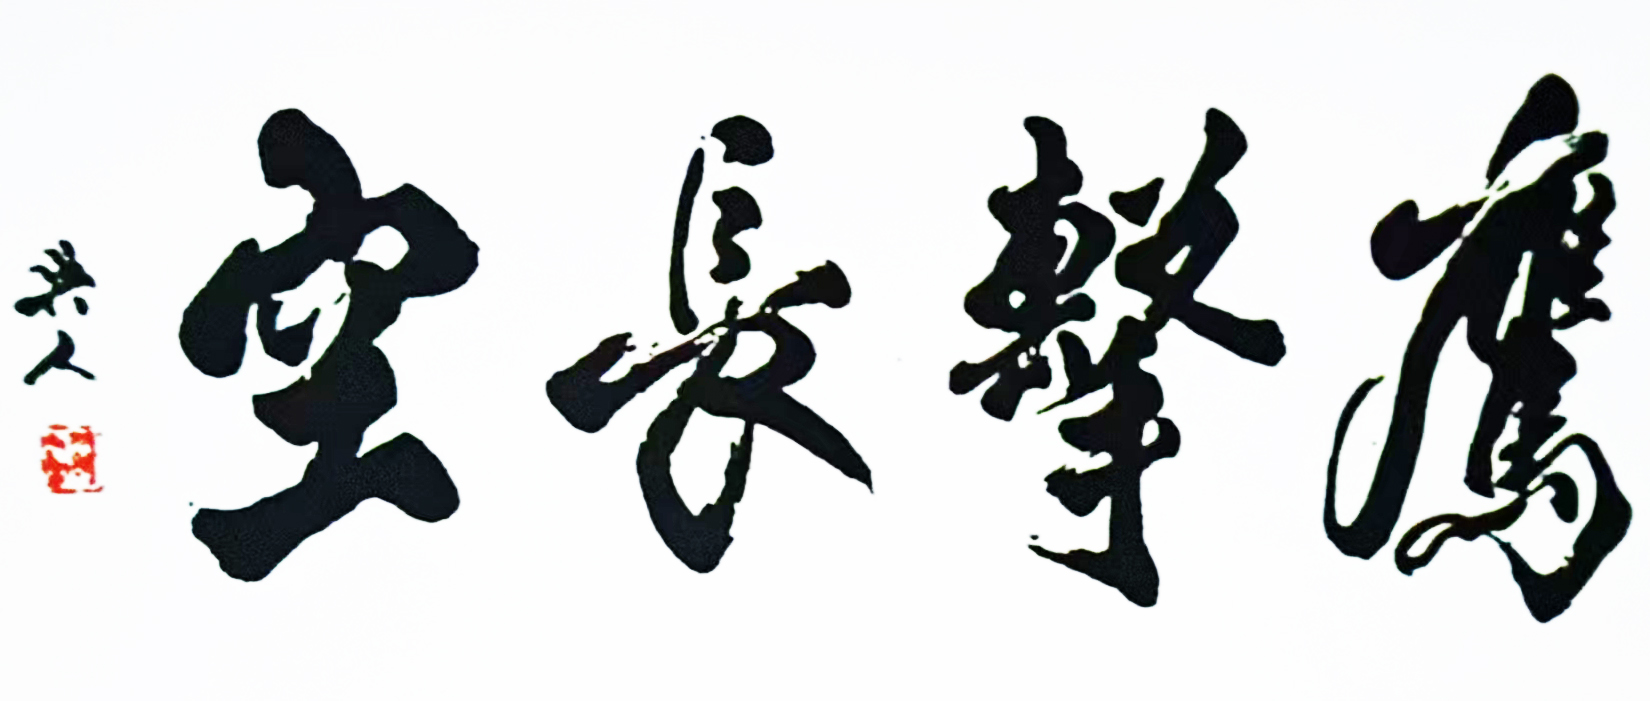 鷹擊長空